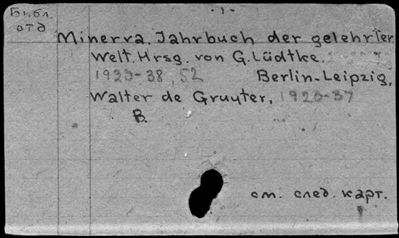 Библ. отд
- 1 -
Minerva. Jahrbuch der gelehrten
Welt. Hrsg. von G. Lüdtke.
1923-38, 52 Berlin-Leipzig,
Walter de Gruyter, 1923-37
B.
см. след. карт.